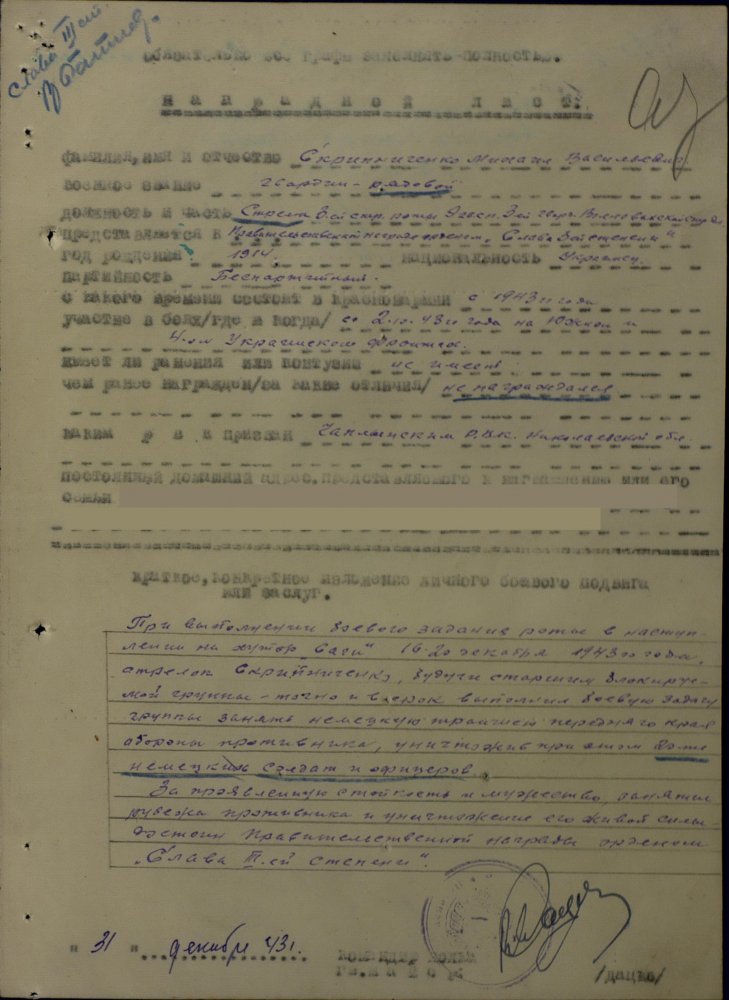 Слава III ей.
обязательно все графы заполнять полностью.
НАГРАДНОЙ ЛИСТ.
фамилия, имя и отчество Скрипниченко Михаил Васильевич
военное звание гвардии - рядовой
должность и часть Стрелок 8ой стр. роты
представляется к Правительственной награде орденом "Слава 3ей степени"
год рождения 1914 национальность Украинец
партийность Беспартийный.
с какого времени состоит в красноармии с 1943 го года
участие в боях/где и когда/ со 2.10.43 го года на Южном и
4-ом Украинском фронтах.
имеет ли ранения или контузии не имеет
чем ранее награжден/за какие отличия/ не награждался.
каким Р В К призван Чаплинским Р.В.К. Николаевской обл.
постоянный домашний адрес, представляемого к награждению или его
семьи
краткое, конкретное изложение личного боевого подвига
или заслуг.
При выполнении боевого задания роты в наступ-
лении на хутор "Ваги" 16-20 декабря 1943 го года,
стрелок Скрипниченко, будучи старшим блокируе-
мой группы - точно и в срок выполнил боевую задачу
группы занять немецкую траншею переднего края
обороны противника, уничтожив при этом
немецких солдат и офицеров.
За проявленную стойкость и мужество, занятие
рубежа противника и уничтожение его живой силы
достоин Правительственной награды орденом
"Слава III.ей степени".
" 31 " декабря 43 г.
командир полка
гв. майор /Дацко/